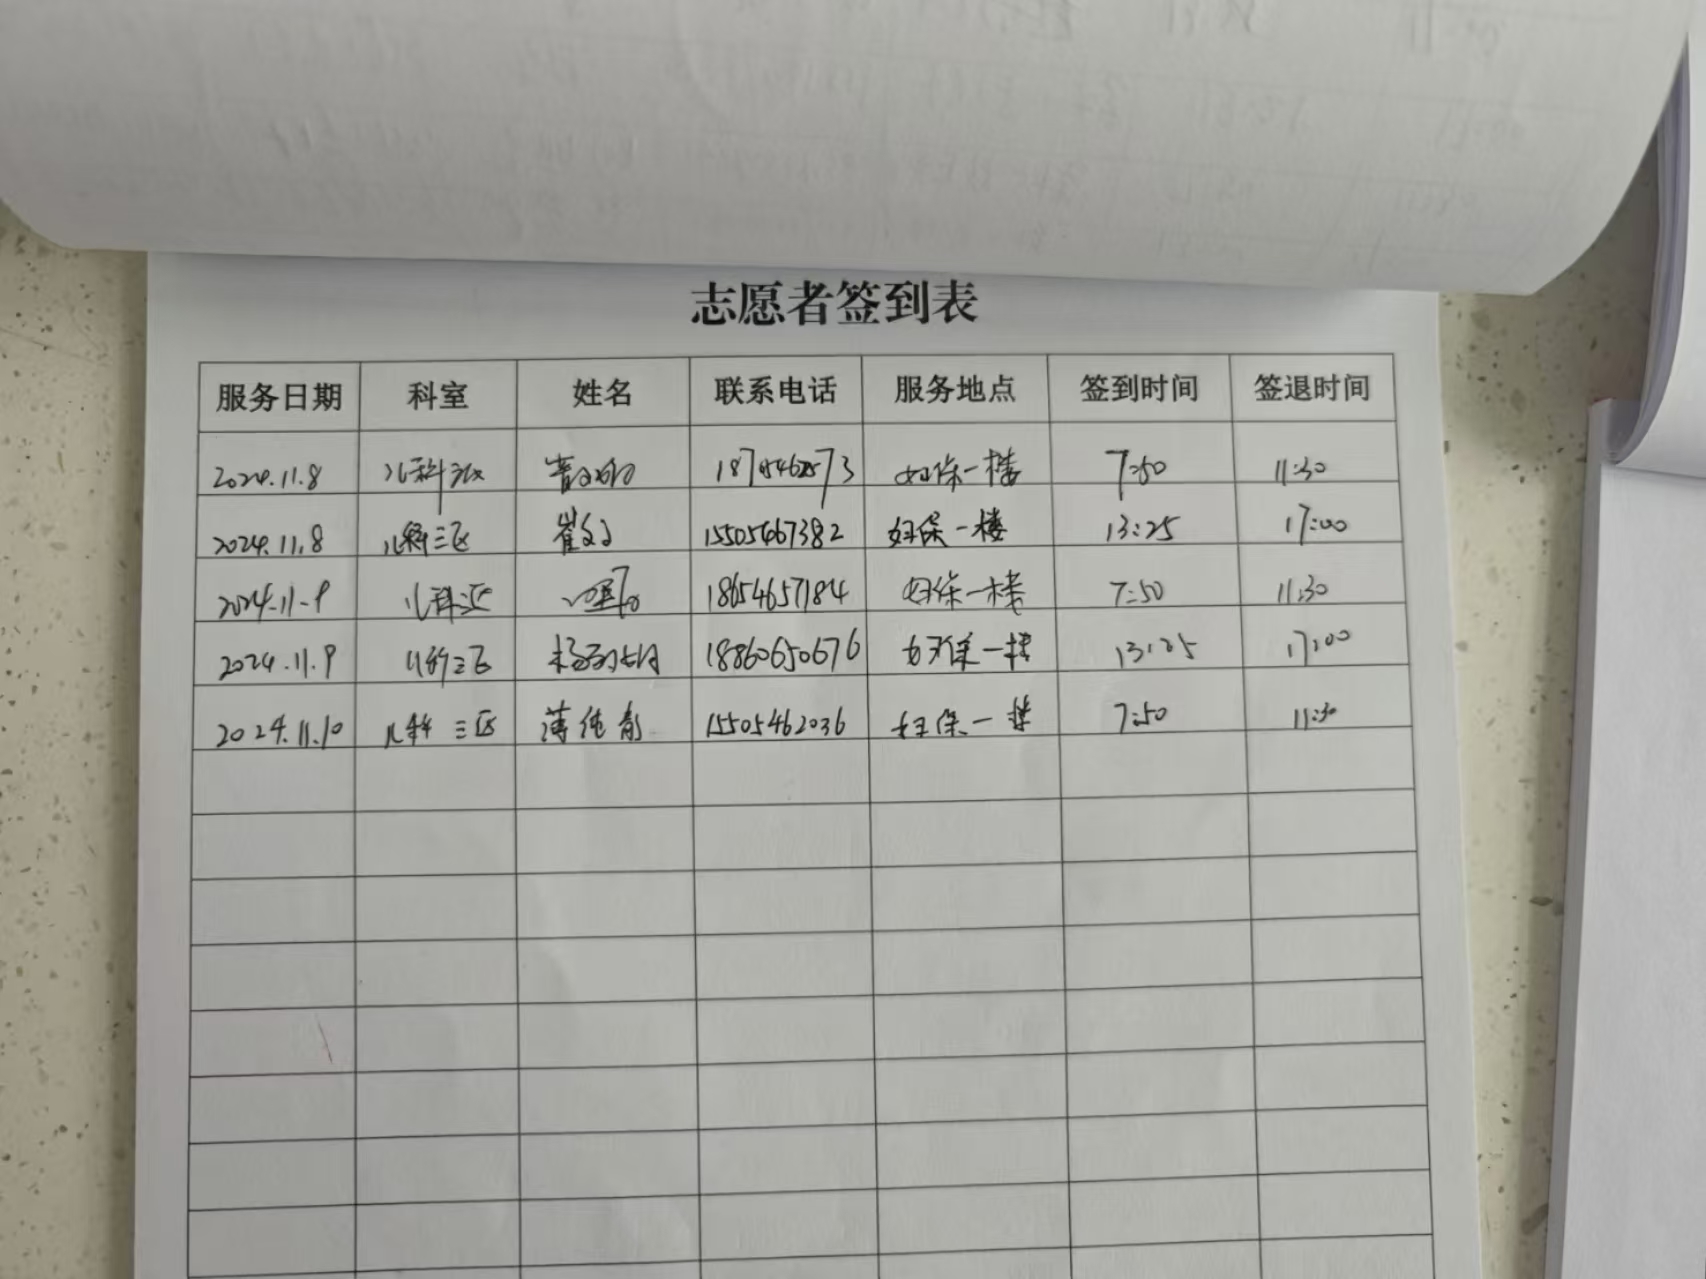 志愿者签到表
服务日期 科室 姓名 联系电话 服务地点 签到时间 签退时间
2024.11.8 儿科三区 妇保一楼 7:50 11:30
2024.11.8 儿科三区 崔文 15505467382 妇保一楼 13:25 17:00
2024.11.9 儿科三区 18654657184 妇保一楼 7:50 11:30
2024.11.9 儿科三区 18860650676 妇保一楼 13:25 17:00
2024.11.10 儿科三区 薄纯青 15505462036 妇保一楼 7:50 11:30